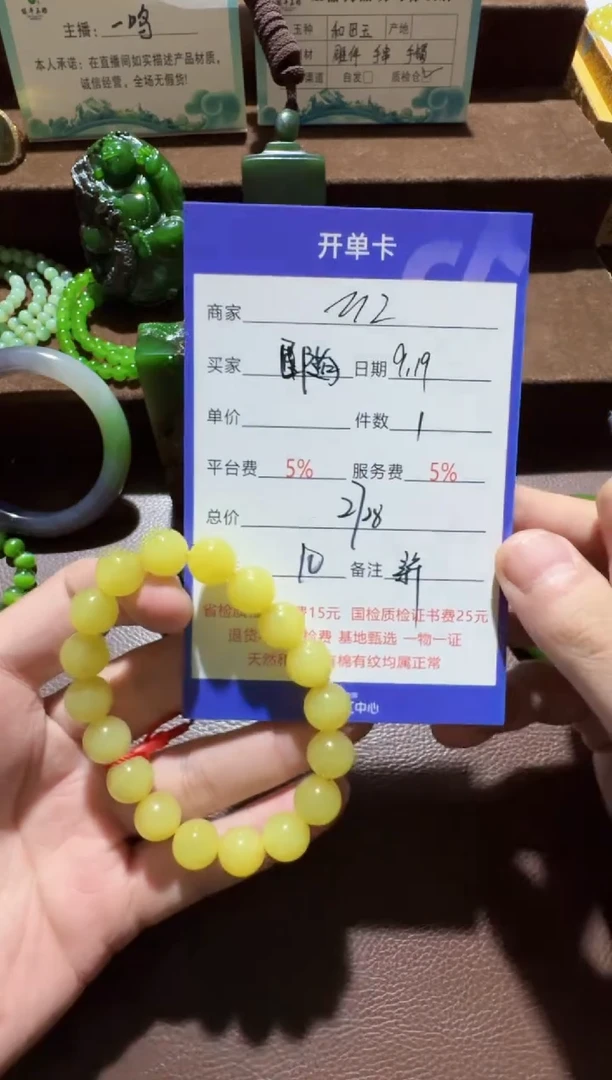 主播：一鸣
本人承诺：在直播间如实描述产品材质，
诚信经营，全场无假货！
玉种 和田玉 产地
材 雕件 手串 手镯
渠道 自发□ 质检仓☑
开单卡
商家 M2
买家 日期 9.19
单价 件数 1
平台费 5% 服务费 5%
总价 2128
10 备注 新
省检质 费15元 国检质检证书费25元
退货 检费 基地甄选 一物一证
天然 有棉有纹均属正常
中心